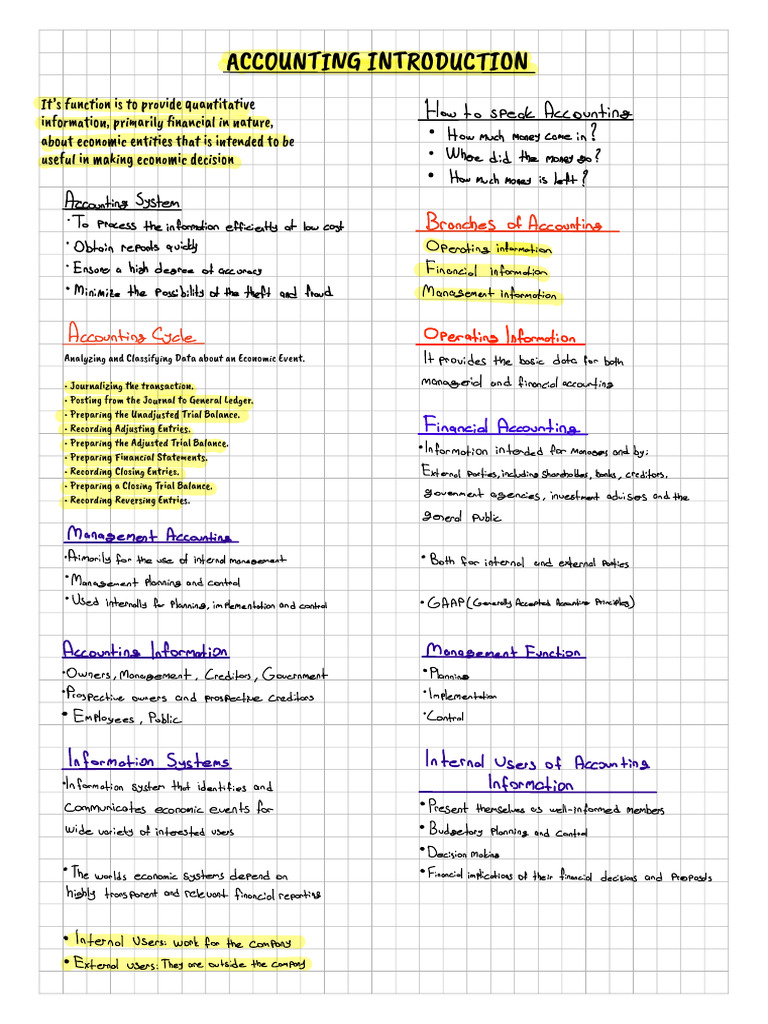 ACCOUNTING INTRODUCTION
It's function is to provide quantitative
information, primarily financial in nature,
about economic entities that is intended to be
useful in making economic decision
Accounting System
• To process the information efficiently at low cost
• Obtain reports quickly
• Ensure a high degree of accuracy
• Minimize the possibility of the theft and fraud
Accounting Cycle
Analyzing and Classifying Data about an Economic Event.
• Journalizing the transaction.
• Posting from the Journal to General Ledger.
• Preparing the Unadjusted Trial Balance.
• Recording Adjusting Entries.
• Preparing the Adjusted Trial Balance.
• Preparing Financial Statements.
• Recording Closing Entries.
• Preparing a Closing Trial Balance.
• Recording Reversing Entries.
Management Accounting
• Primorily for the use of internal management
• Management Planning and control
• Used internally for Planning, implementation and control
Accounting Information
• Owners, Management, Creditors, Government
• Prospective owners and prospective Creditors
• Employees, Public
Information Systems
• Information system that identifies and
communicates economic events for
wide variety of interested users
• The worlds economic systems depend on
highly transparent and relevant financial reporting
• Internal Users: work for the company
• External users: They are outside the company
How to speak Accounting
• How much money come in?
• Where did the money go?
• How much money is left?
Branches of Accounting
Operating information
Financial information
Management information
Operating Information
It provides the basic data for both
managerial and financial accounting
Financial Accounting
• Information intended for managers and by;
External parties, including shareholders, banks, creditors,
government agencies, investment advisers and the
general public
• Both for internal and external parties
• GAAP (Generally Accepted Accounting Principles)
Management Function
• Planning
• Implementation
• Control
Internal Users of Accounting
Information
• Present themselves as well-informed members
• Budgetary Planning and Control
• Decision Making
• Financial implications of their financial decisions and proposals